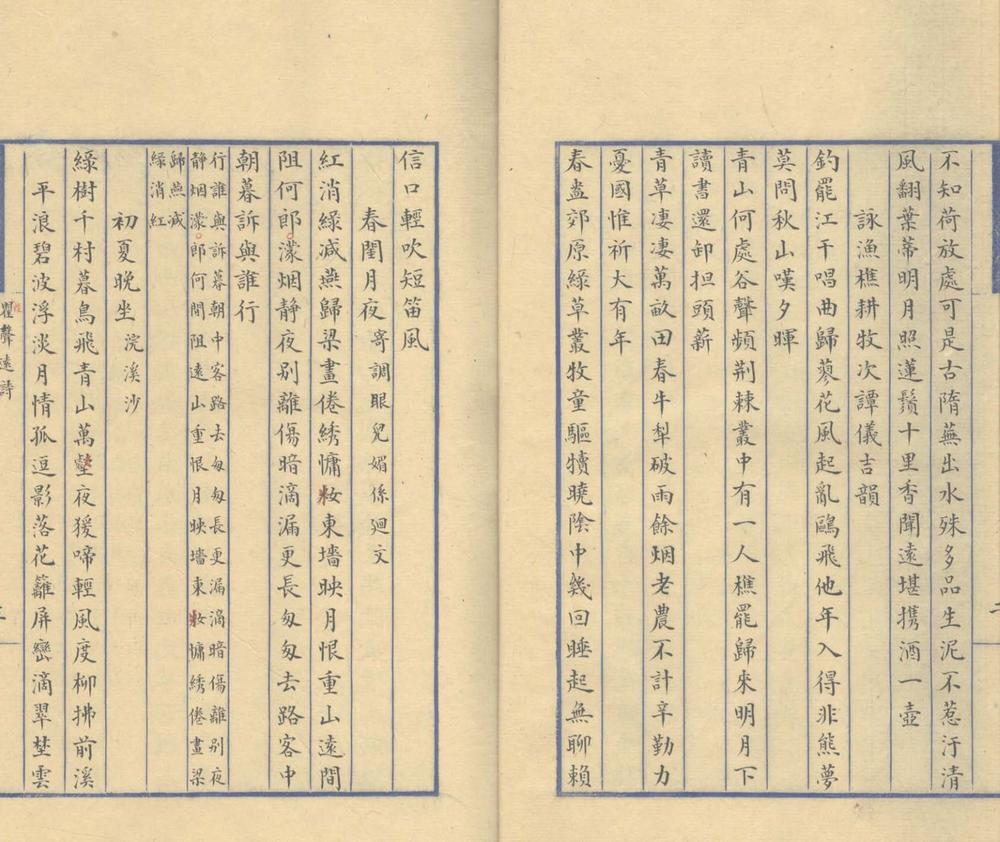 不知荷放處可是古隋蕪出水殊多品生泥不惹汙清
風翻葉蒂明月照蓮鬚十里香聞遠堪携酒一壺
詠漁樵耕牧次譚儀吉韻
釣罷江干唱曲歸蓼花風起亂鷗飛他年入得非熊夢
莫問秋山嘆夕暉
青山何處谷聲頻荆棘叢中有一人樵罷歸來明月下
讀書還卸担頭薪
青草凄凄萬畝田春牛犁破雨餘烟老農不計辛勤力
憂國惟祈大有年
春盎郊原綠草叢牧童驅犢曉陰中幾回睡起無聊賴
信口輕吹短笛風
春閨月夜寄調眼兒媚係廻文
紅消綠減燕歸梁畫倦綉慵妝東墻映月恨重山遠間
阻何郎濛烟静夜别離傷暗滴漏更長匆匆去路客中
朝暮訴與誰行
行誰與訴暮朝中客路去匆匆長更漏滴暗傷離别夜
静烟濛郎何間阻遠山重恨月映墻東妝慵綉倦畫梁
歸燕减
綠消紅
初夏晚坐浣溪沙
綠樹千村暮鳥飛青山萬壑夜猨啼輕風度柳拂前溪
平浪碧波浮淡月情孤逗影落花籬屏巒滴翠埜雲
瞿聲遠詩